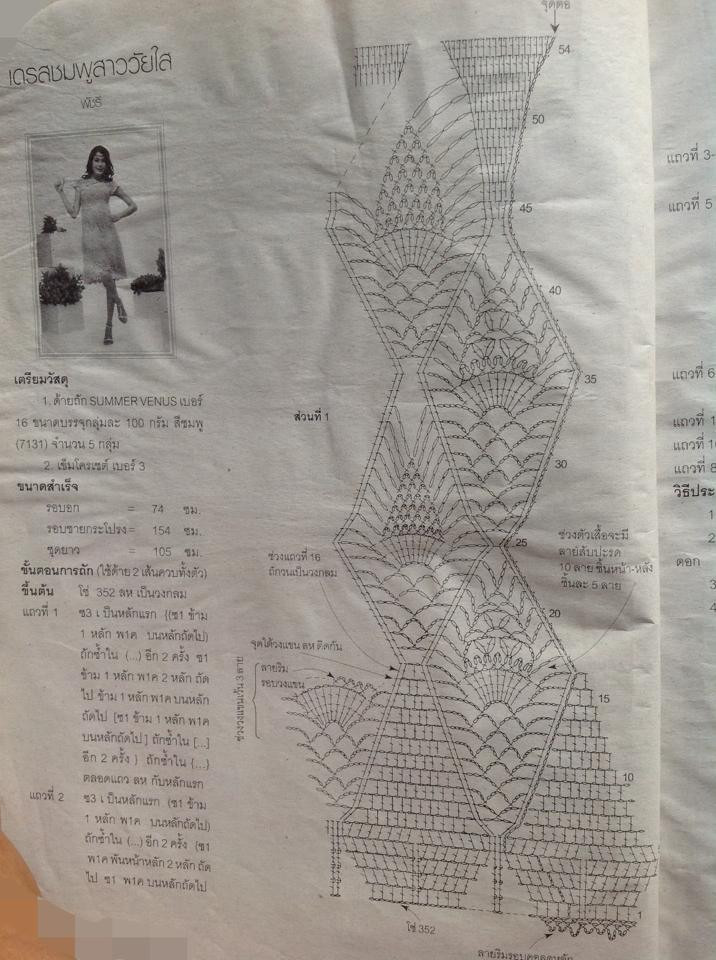 เดรสชมพูสาววัยใส
พัชรี
เตรียมวัสดุ
1. ด้ายถัก SUMMER VENUS เบอร์
16 ขนาดบรรจุกลุ่มละ 100 กรัม สีชมพู
(7131) จำนวน 5 กลุ่ม
2. เข็มโครเชต์ เบอร์ 3
ขนาดสำเร็จ
รอบอก = 74 ซม.
รอบชายกระโปรง = 154 ซม.
ชุดยาว = 105 ซม.
ขั้นตอนการถัก (ใช้ด้าย 2 เส้นควบทั้งตัว)
ขึ้นต้น โซ่ 352 ลห เป็นวงกลม
แถวที่ 1 ซ3 เป็นหลักแรก {(ซ1 ข้าม
1 หลัก พ1ค บนหลักถัดไป)
ถักซ้ำใน (...) อีก 2 ครั้ง ซ1
ข้าม 1 หลัก พ1ค 2 หลัก ถัด
ไป ข้าม 1 หลัก พ1ค บนหลัก
ถัดไป [ซ1 ข้าม 1 หลัก พ1ค
บนหลักถัดไป] ถักซ้ำใน [...]
อีก 2 ครั้ง } ถักซ้ำใน {...}
ตลอดแถว ลห กับหลักแรก
แถวที่ 2 ซ3 เป็นหลักแรก (ซ1 ข้าม
1 หลัก พ1ค บนหลักถัดไป)
ถักซ้ำใน (...) อีก 2 ครั้ง {ซ1
พ1ค พันหน้าหลัก 2 หลัก ถัด
ไป ซ1 พ1ค บนหลักถัดไป
จุดต่อ
54
50
45
40
35
ส่วนที่ 1
30
25
ช่วงแถวที่ 16
ถักวนเป็นวงกลม
ช่วงตัวเสื้อจะมี
ลายสับปะรด
10 ลาย ชิ้นหน้า-หลัง
ชิ้นละ 5 ลาย
20
จุดใต้วงแขน ลห ติดกัน
ลายริม
รอบวงแขน
ช่วงวงแขนเว้น 3 ลาย
15
10
1
โซ่ 352
ลายริมรอบคอ
แถวที่ 3-
แถวที่ 5
แถวที่ 6
แถวที่ 1
แถวที่ 1
แถวที่ 8
วิธีประ
1
2
ดอก
3
4